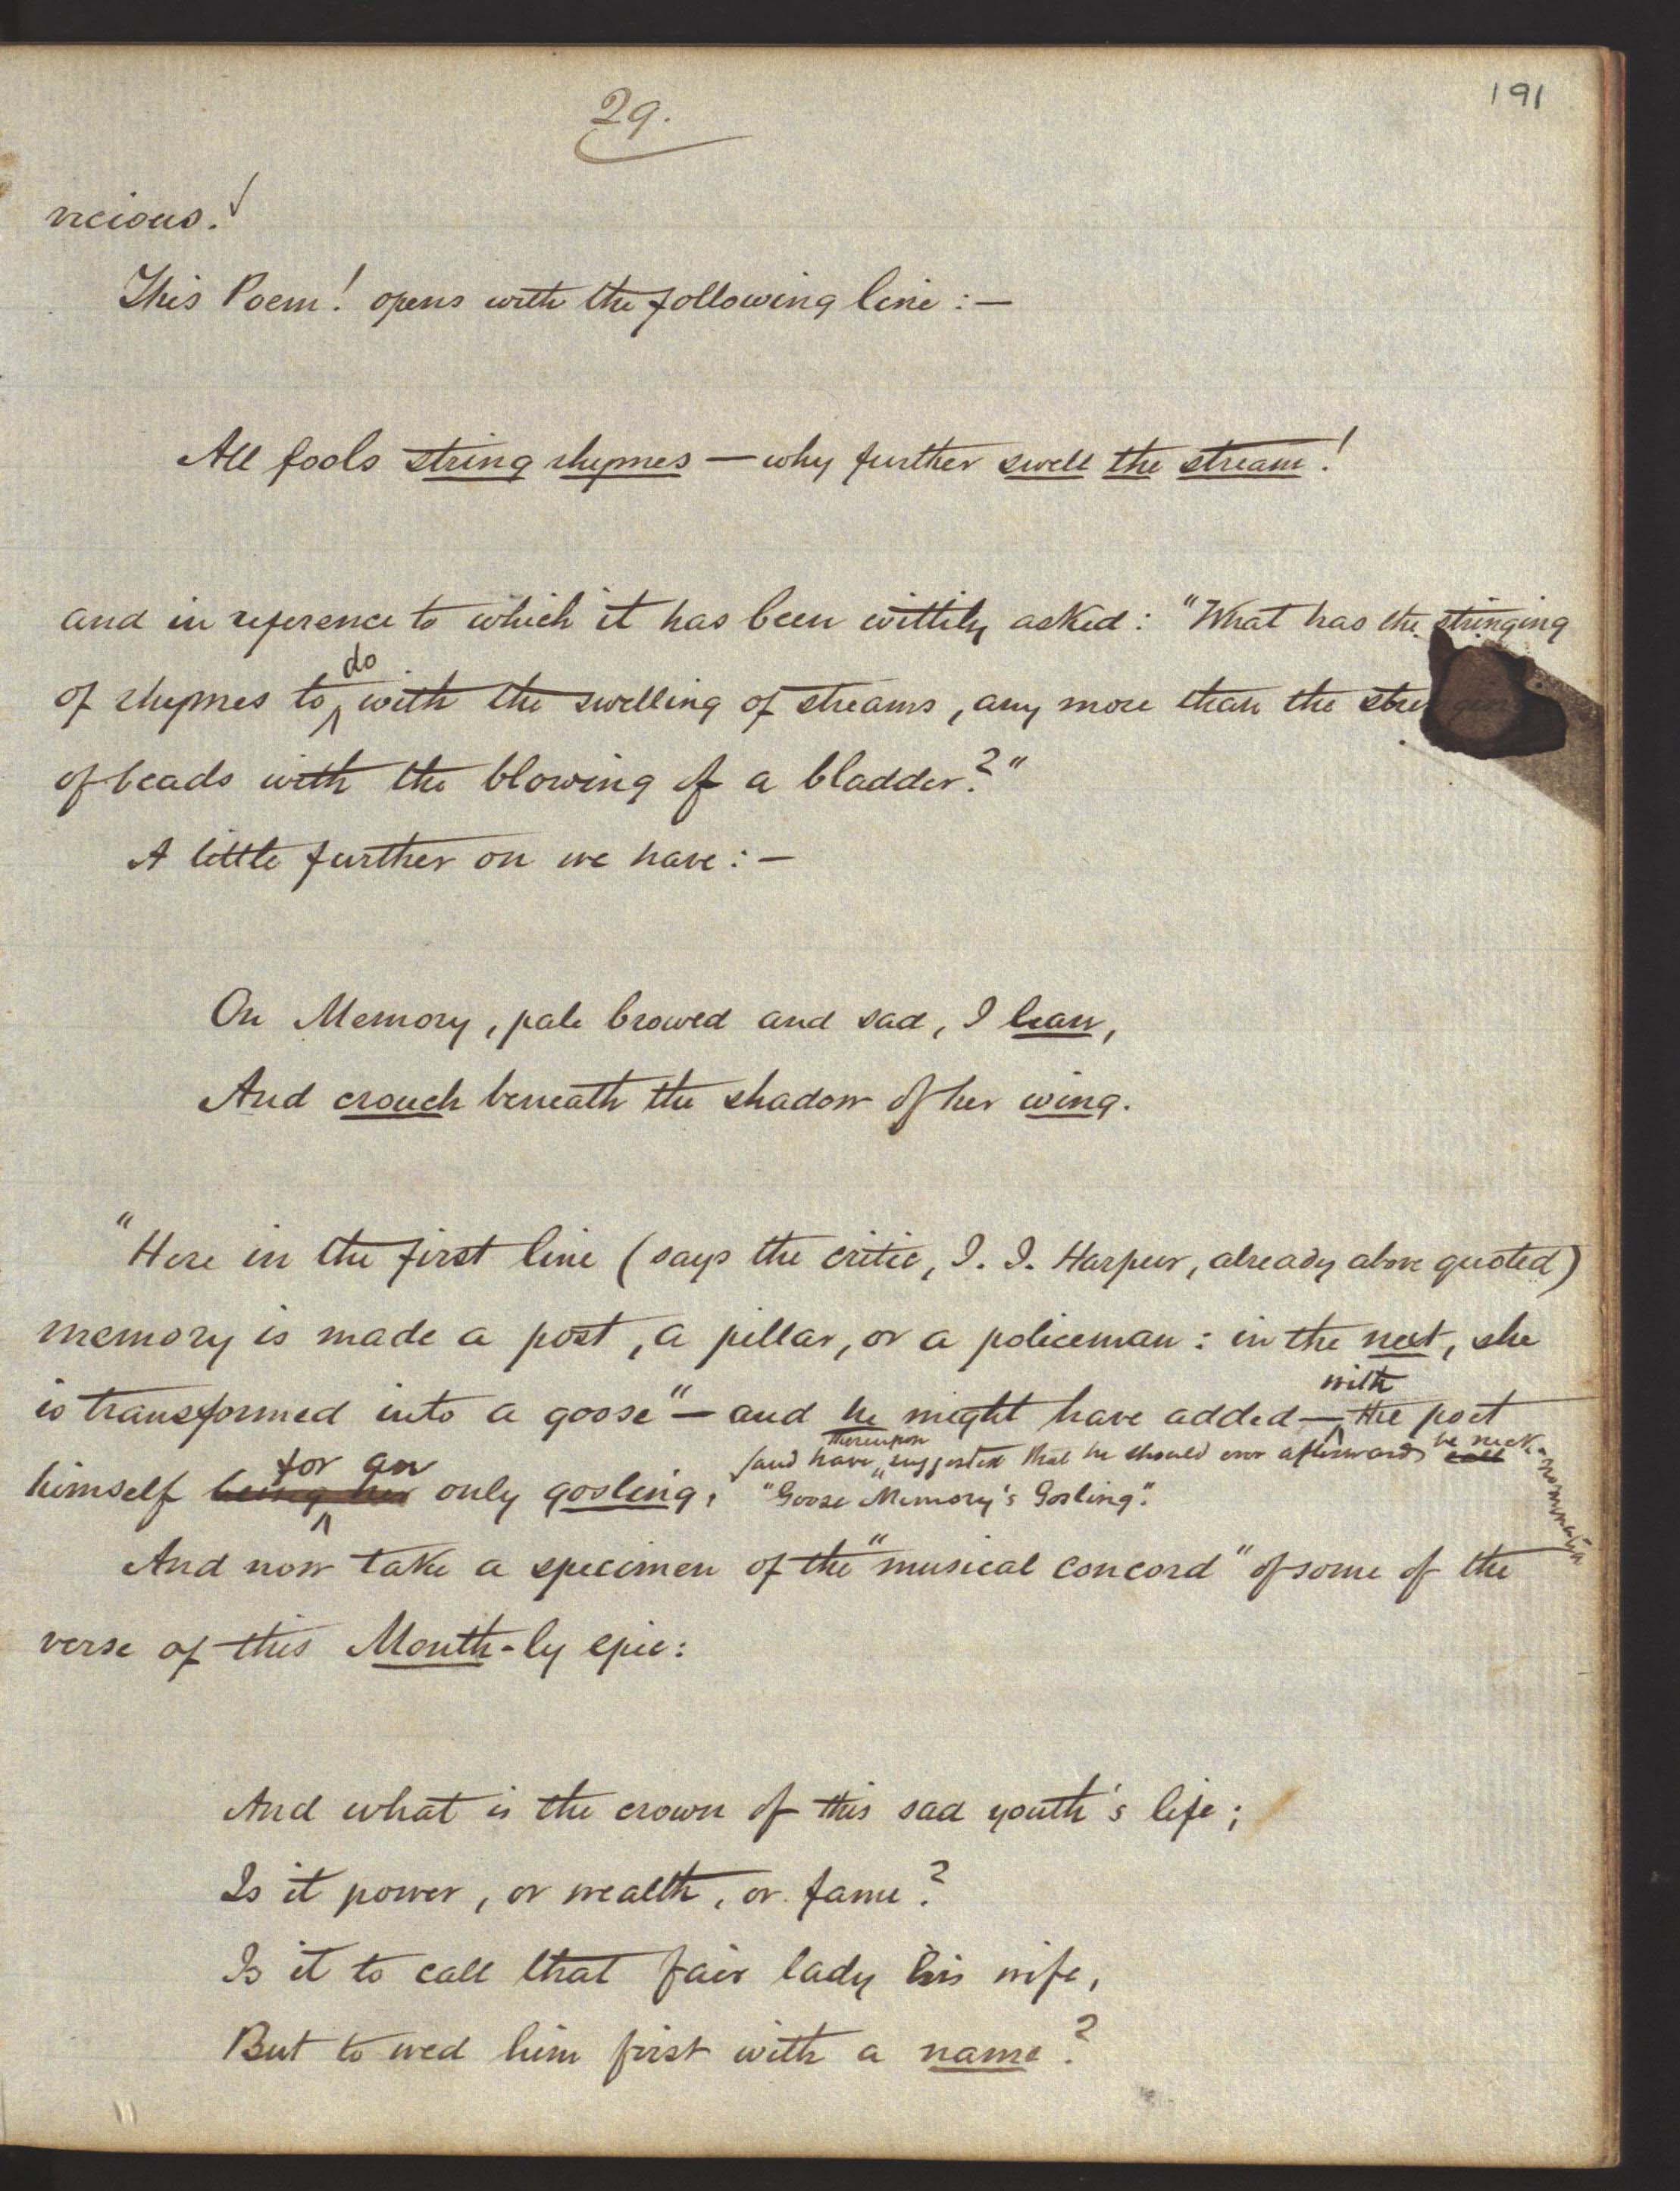 191
29.
vicious.
This Poem! opens with the following line:—
All fools string rhymes — why further swell the stream!
and in reference to which it has been wittily asked: "What has the stringing
of rhymes to do with the swelling of streams, any more than the
of beads with the blowing of a bladder?"
A little further on we have:—
On Memory, pale browed and sad, I lean,
And crouch beneath the shadow of her wing.
"Here in the first line (says the critic, J. J. Harpur, already above quoted)
memory is made a post, a pillar, or a policeman: in the next, she
is transformed into a goose" — and he might have added — with the poet
himself being her for an only gosling,
(and have thereupon suggested that he should ever afterwards call be nick-
"Goose Memory's Gosling".
And now take a specimen of the "musical concord" of some of the
verse of this Mouth-ly epic:
And what is the crown of this sad youth's life;
Is it power, or wealth, or fame?
Is it to call that fair lady his wife,
But to wed him first with a name?